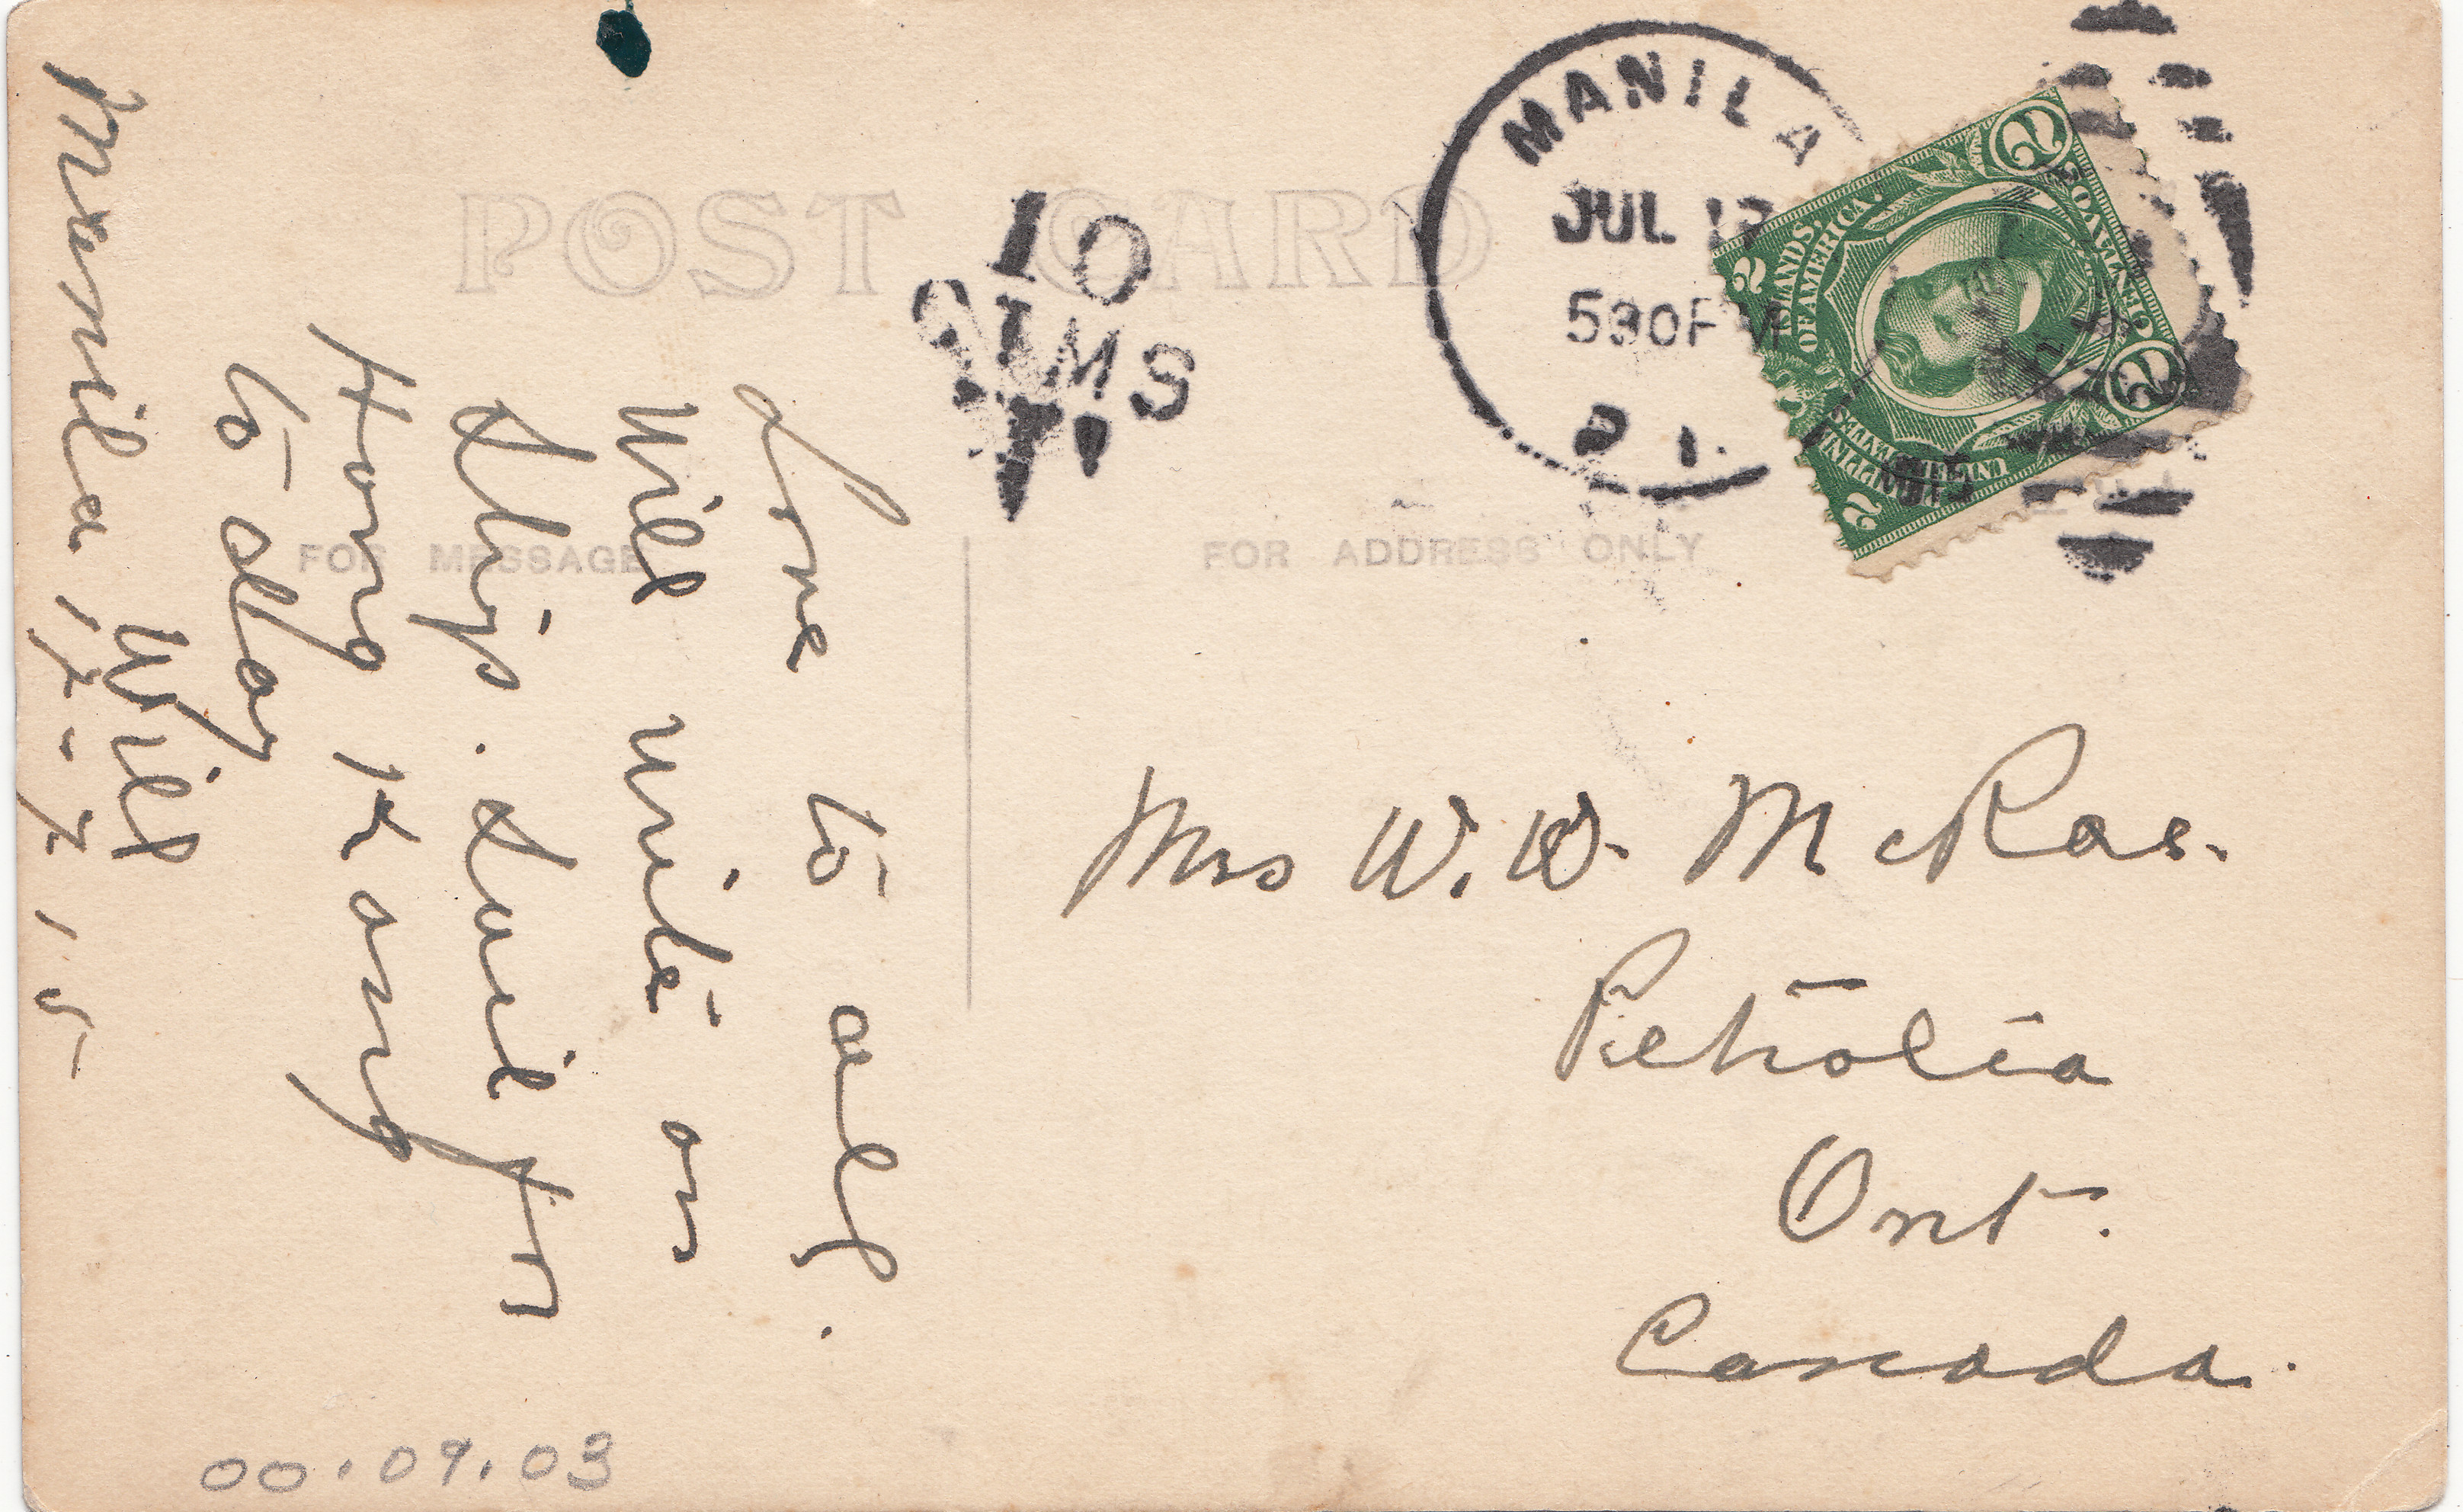 POST CARD
FOR MESSAGE
FOR ADDRESS ONLY
MANILA
JUL
530PM
P. I.
10
2 CENTAVOS 2
PHILIPPINE ISLANDS
UNITED STATES OF AMERICA
2 2
Love to all.
Will write on
ship. Sail for
Hong Kong
to day
Will
Manila, 17-7,15
Mrs W. W. McRae.
Petrolia
Ont.
Canada.
00.09.03